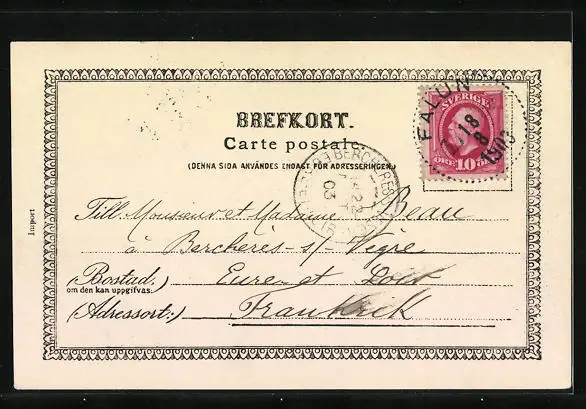 BREFKORT.
Carte postale.
(DENNA SIDA ANVÄNDES ENDAST FÖR ADRESSERINGEN.)
SVERIGE
ÖRE 10
FALUN
18
8
1903
BERCHERES
22
03
Till Monsieur et Madame Beau
à Berchères-s/-Vègre
(Bostad:) Eure-et Loir
om den kan uppgifvas.
(Adressort:) Frankrik
Import